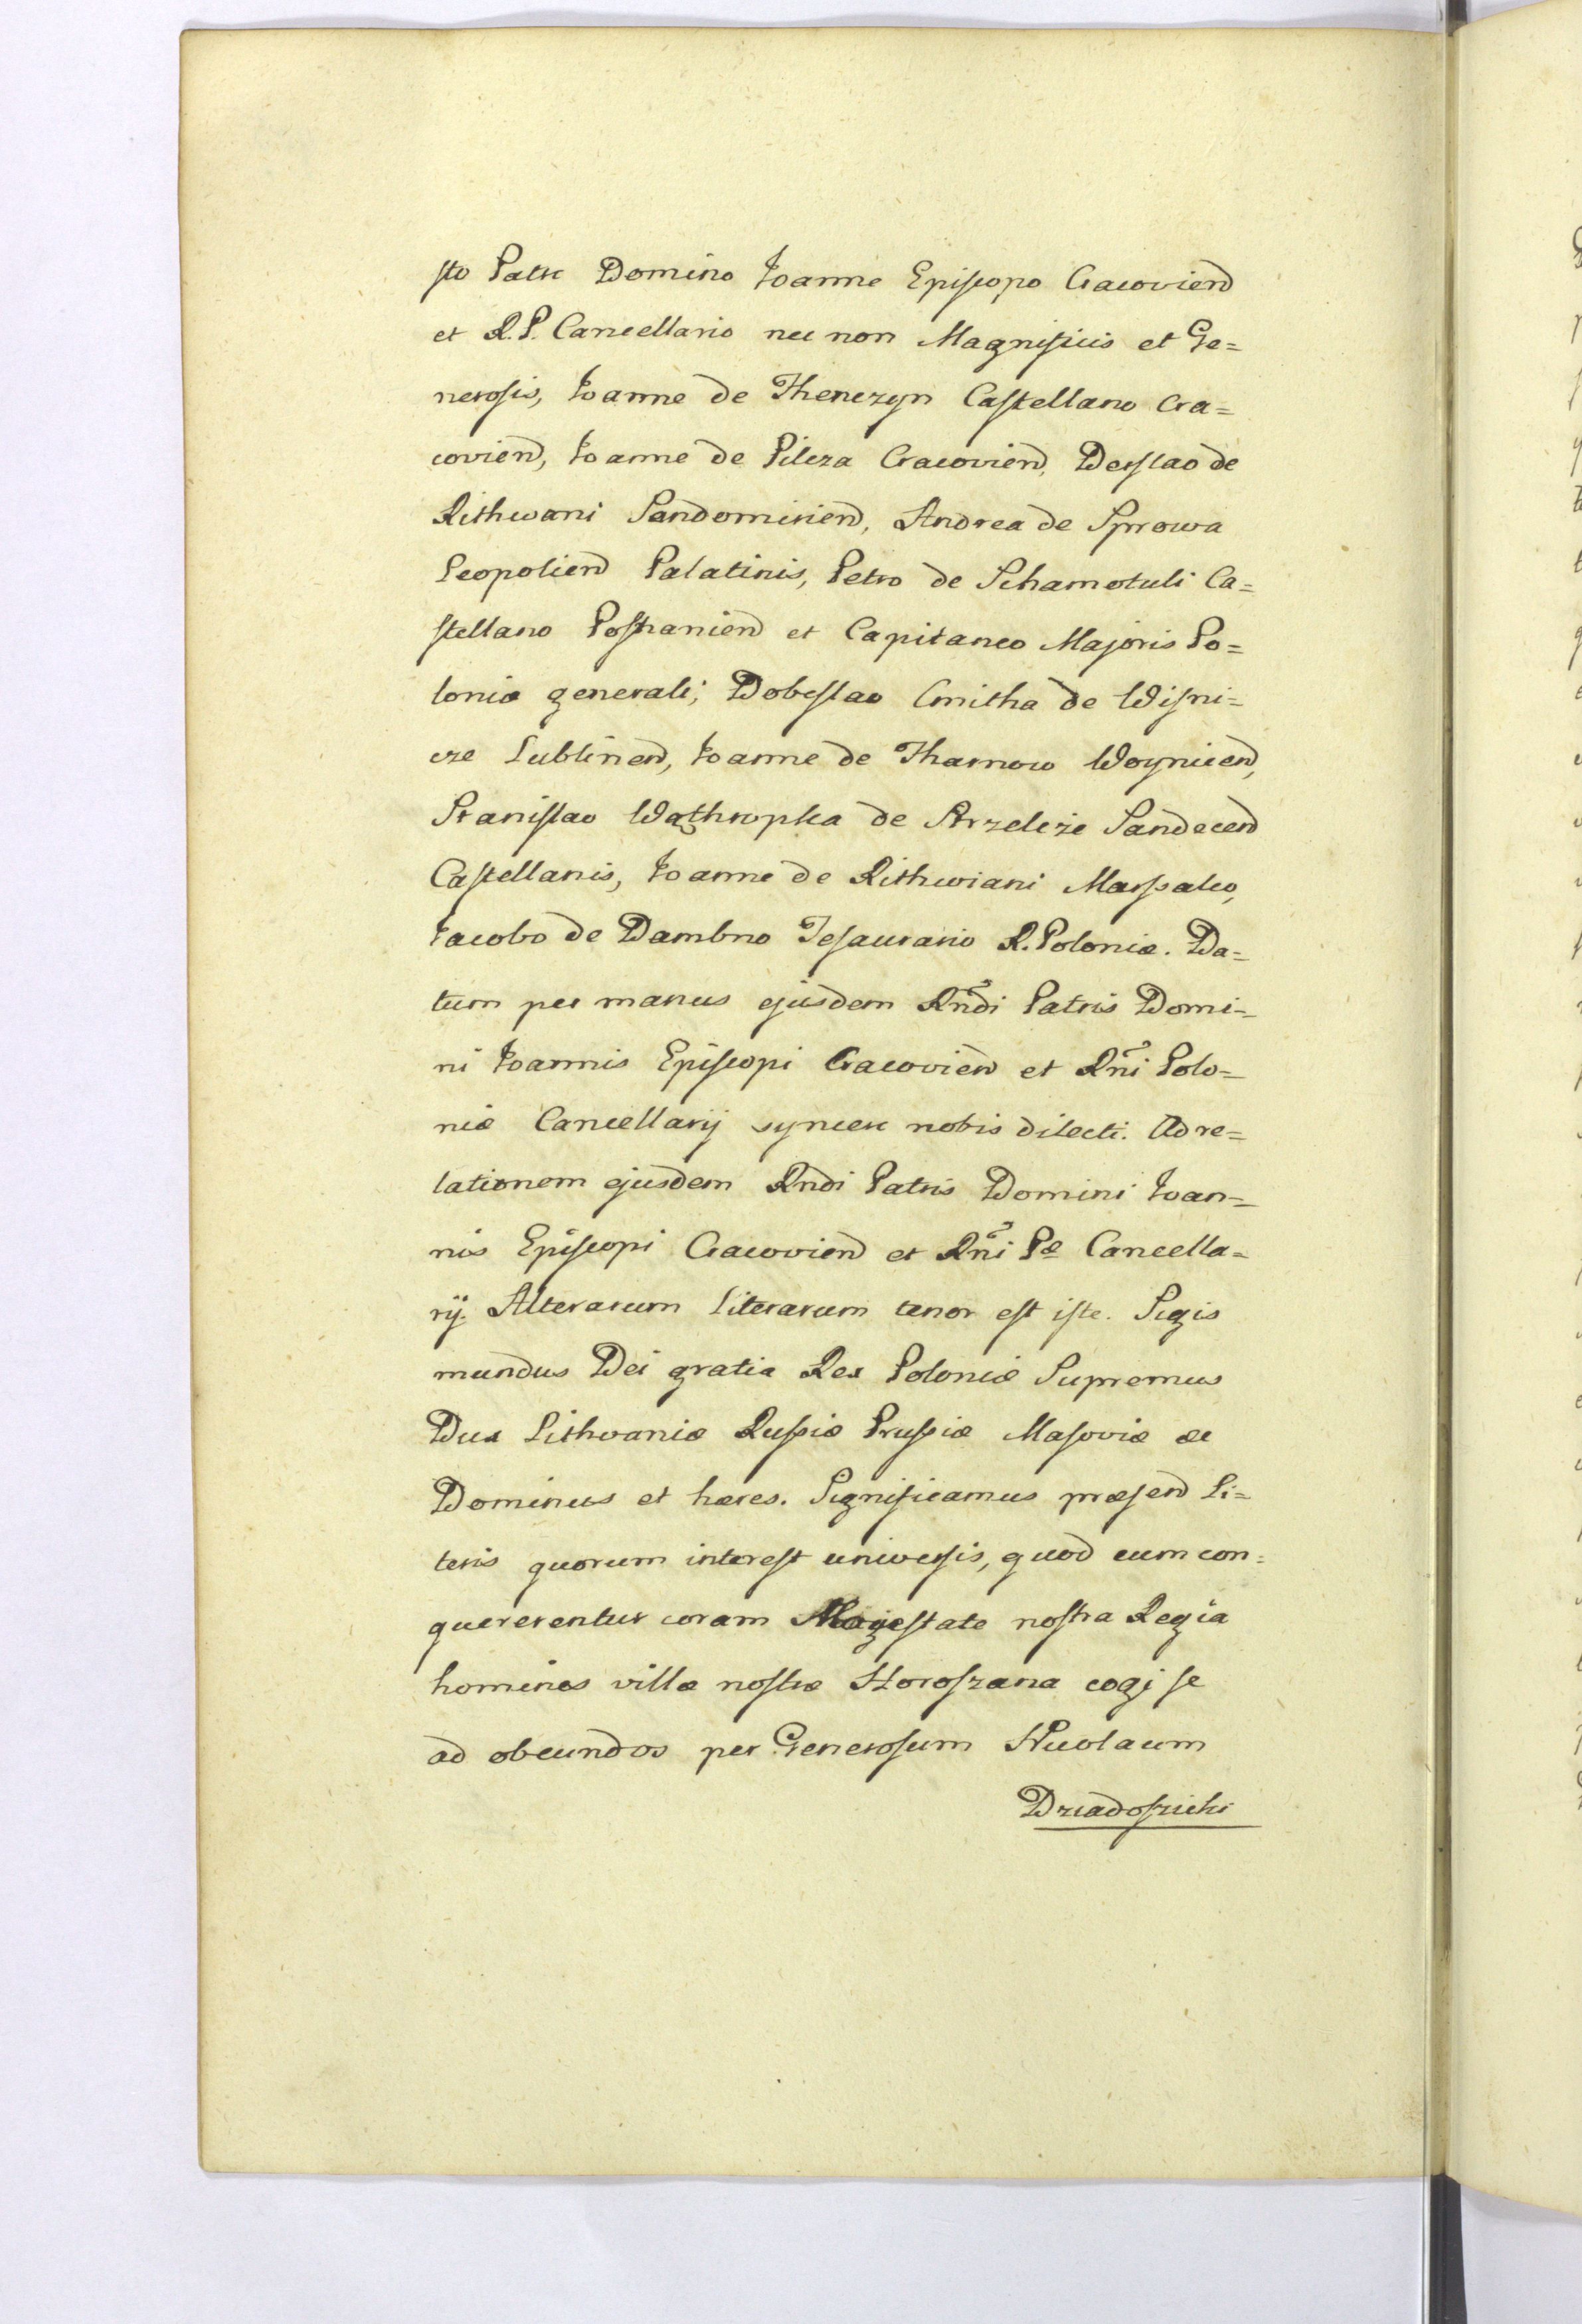 sto Patre Domino Joanne Episcopo Cracovien̄
et R. P. Cancellario nec non Magnificis et Ge=
nerosis, Joanne de Thenczyn Castellano Cra=
covien̄, Joanne de Pilcza Cracovien̄, Derslao de
Rithwani Sandomirien̄, Andrea de Sprowa
Leopolien̄ Palatinis, Petro de Schamotuli Ca=
stellano Posnanien̄ et Capitaneo Majoris Po=
loniæ generali; Dobeslao Cmitha de Wisni=
cze Lublinen̄, Joanne de Tharnow Woynicen̄,
Stanislao Wathropka de Strzelcze Sandecen̄
Castellanis, Joanne de Rithwiani Marsalco,
Jacobo de Dambno Tesaurario R. Poloniæ. Da=
tum per manus ejusdem Rndi Patris Domi=
ni Joannis Episcopi Cracovien̄ et Rni Polo=
niæ Cancellarij syncere nobis dilecti. Ad re=
lationem ejusdem Rndi Patris Domini Joan=
nis Episcopi Cracovien̄ et Rni Pæ Cancella=
rij. Alterarum Literarum tenor est iste. Sigis
mundus Dei gratia Rex Poloniæ Supremus
Dux Lithvaniæ Russiæ Prussiæ Masoviæ &c
Dominus et hæres. Significamus præsen̄ Li=
teris quorum interest universis, quod cum con=
quererentur coram Majestate nostra Regia
homines villæ nostræ Horoszana cogi se
ad obeundos per Generosum Nicolaum
Dziadoszicki